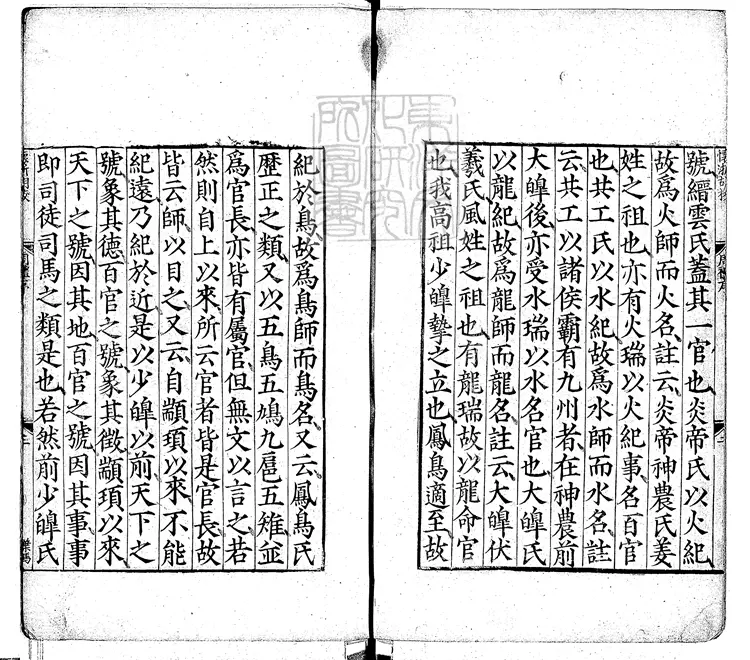 號縉雲氏蓋其一官也炎帝氏以火紀
故爲火師而火名註云炎帝神農氏姜
姓之祖也亦有火瑞以火紀事名百官
也共工氏以水紀故爲水師而水名註
云共工以諸侯霸有九州者在神農前
大皥後亦受水瑞以水名官也大皥氏
以龍紀故爲龍師而龍名註云大皥伏
羲氏風姓之祖也有龍瑞故以龍命官
也我高祖少皥摯之立也鳳鳥適至故
紀於鳥故爲鳥師而鳥名又云鳳鳥氏
歷正之類又以五鳥五鳩九扈五雉並
爲官長亦皆有屬官但無文以言之若
然則自上以來所云官者皆是官長故
皆云師以目之又云自顓頊以來不能
紀遠乃紀於近是以少皥以前天下之
號象其德百官之號象其徵顓頊以來
天下之號因其地百官之號因其事事
即司徒司馬之類是也若然前少皥氏